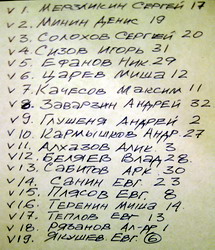 v 1. Мегаликин Сергей 17
v 2. Минин Денис 19
v 3. Солохов Сергей 20
v 4. Сизов Игорь 31
v 5. Ефанов Ник 29
v 6. Царев Миша 12
v 7. Качесов Максим 11
v 8. Заварзин Андрей 32
v 9. Глушеня Андрей 2
v 10. Кармышков Андр 27
v 11. Алхазов Алик 3
v 12. Беляев Влад 28
v 13. Сабитов Арк. 30
v 14. Санин Евг 23
v 15. Плясов Евг. 8
v 16. Теренин Миша 14
v 17. Теплов Евг 13
v 18. Рязанов Ал-др 1
v 19. Якушев Евг. 6